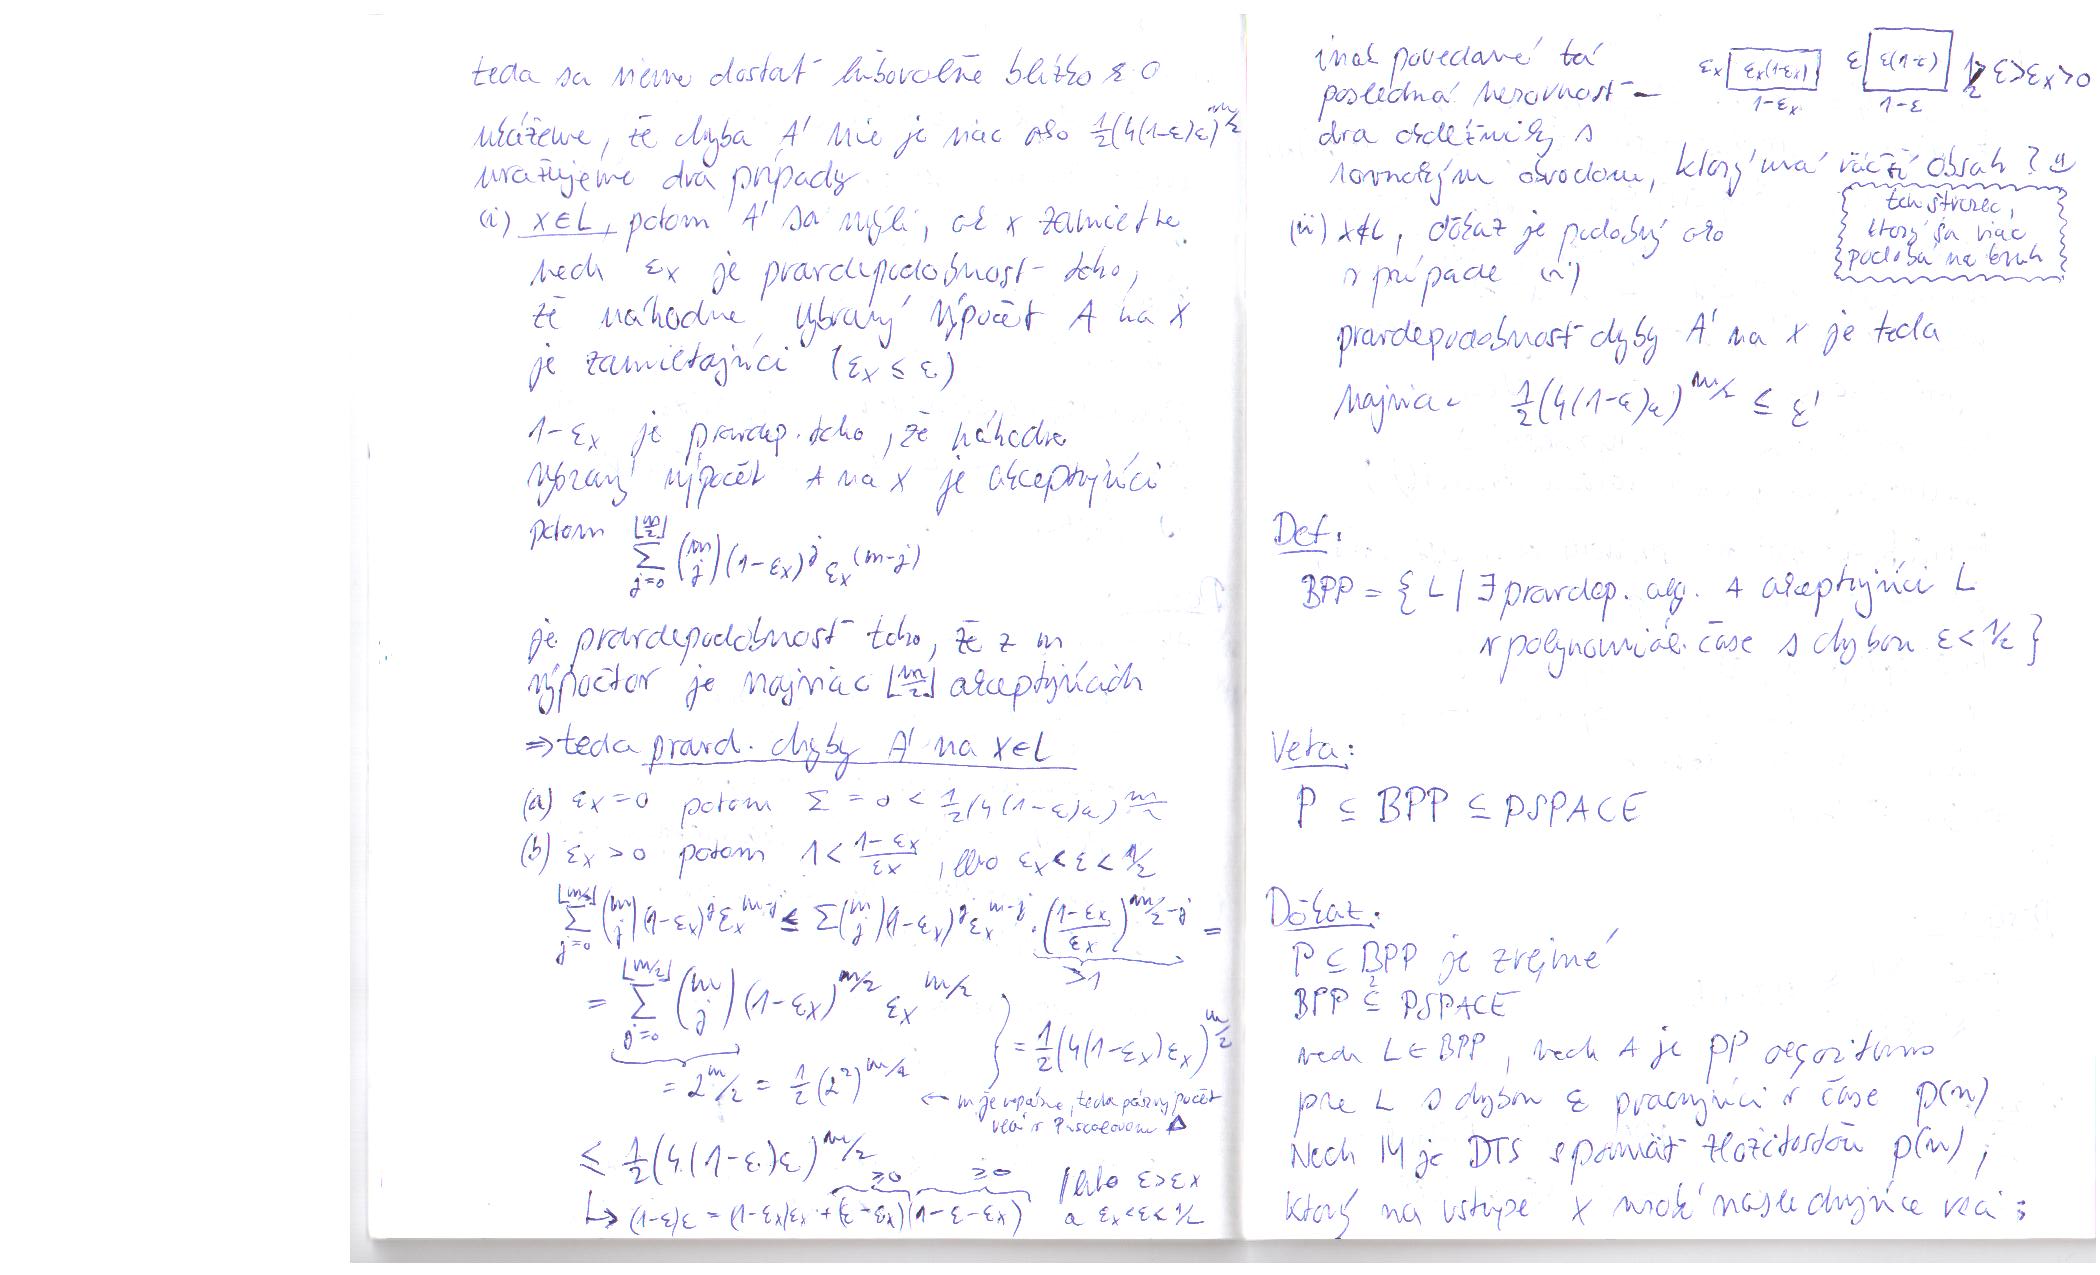 teda sa vieme dostať ľubovoľne blízko k 0
ukážeme, že chyba A' nie je viac ako ½(4(1-ε)ε)^{m/2}
uvažujeme dva prípady
(i) x∈L, potom A' sa mýli, ak x zamietne
nech ε_x je pravdepodobnosť toho,
že náhodne vybraný výpočet A na x
je zamietajúci (ε_x ≤ ε)
1-ε_x je pravdep. toho, že náhodne
vybraný výpočet A na x je akceptujúci
potom \sum_{j=0}^{⌊m/2⌋} \binom{m}{j} (1-ε_x)^j ε_x^{(m-j)}
je pravdepodobnosť toho, že z m
výpočtov je najviac ⌊m/2⌋ akceptujúcich
⇒ teda pravd. chyby A' na x∈L
(a) ε_x=0 potom Σ = 0 < ½(4(1-ε)ε)^{m/2}
(b) ε_x > 0 potom 1 < \frac{1-ε_x}{ε_x}, lebo ε_x < ε < ½
\sum_{j=0}^{⌊m/2⌋} \binom{m}{j} (1-ε_x)^j ε_x^{m-j} ≤ Σ \binom{m}{j} (1-ε_x)^j ε_x^{m-j} · (\frac{1-ε_x}{ε_x})^{m/2-j} =
>1
= \sum_{j=0}^{⌊m/2⌋} \binom{m}{j} (1-ε_x)^{m/2} ε_x^{m/2}
= ½(4(1-ε_x)ε_x)^{m/2}
= 2^m/2 = ½(2²)^{m/2}
← m je nepárne, teda párny počet
vecí v Pascalovom Δ
≤ ½(4(1-ε)ε)^{m/2}
≥0 ≥0 / lebo ε>ε_x
↳ (1-ε)ε = (1-ε_x)ε_x + (ε-ε_x)(1-ε-ε_x) a ε_x<ε<½
inak povedané tá
posledná nerovnosť –
dva obdĺžniky s
rovnakým obvodom, ktorý má väčší obsah? ☺
ε_x ε_x(1-ε_x) 1-ε_x
ε ε(1-ε) 1-ε
½ > ε > ε_x > 0
ten štvorec,
ktorý sa viac
podobá na kruh
(ii) x∉L, dôkaz je podobný ako
v prípade (i)
pravdepodobnosť chyby A' na x je teda
najviac ½(4(1-ε)ε)^{m/2} ≤ ε'
Def.
BPP = { L | ∃ pravdep. alg. A akceptujúci L
v polynomiál. čase s chybou ε < ½ }
Veta:
P ⊆ BPP ⊆ PSPACE
Dôkaz:
P ⊆ BPP je zrejmé
BPP ⊆? PSPACE
nech L∈BPP, nech A je PP algoritmus
pre L s chybou ε pracujúci v čase p(n)
Nech M je DTS s pamäť. zložitosťou p(n),
ktorý na vstupe x urobí nasledujúce veci: